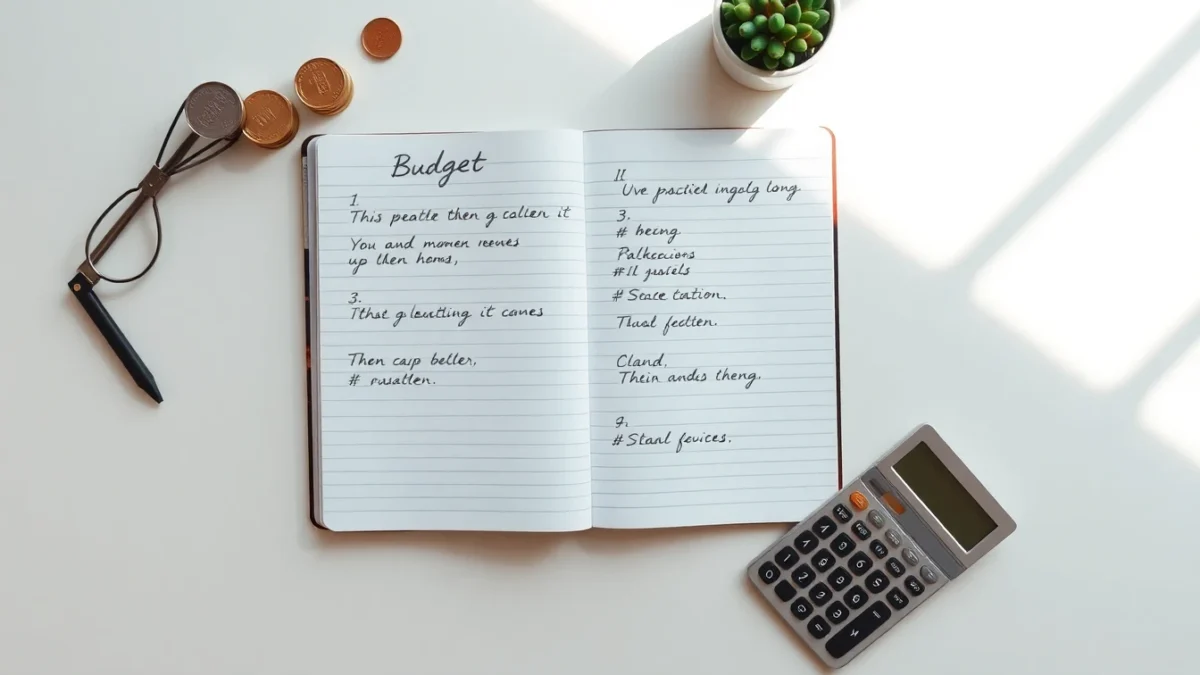 Budget
1.
This peatle then g callen it
You and momen reeves
up then homs,
3.
Tthat gleutting it canes
Then casp beller,
# rusatten.
11
Uve pactiel ingaly long.
3.
# becng
Palkecions
#11 gustels
# Seace tation.
Thasl fectten.
Cland,
Thein andes theng.
9.
# Stanl feuices.